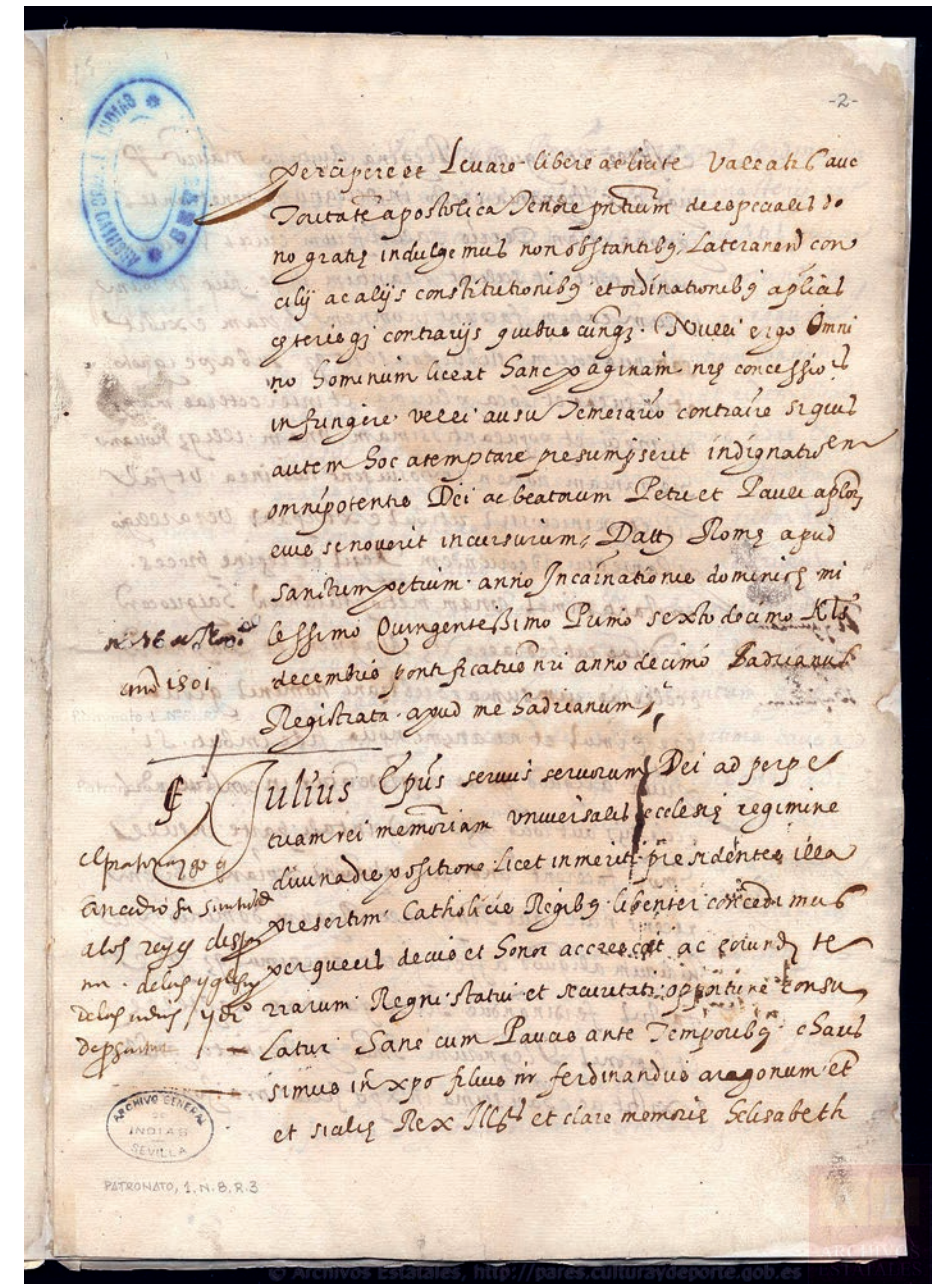 -2-
percipere et Levare libere ac licite valeatis auc
toritate apostolica Tenore pntium de especialis do
no gratię indulgemus non obstantibꝰ Lateranen con
cilij ac alijs constitutionibꝰ et ordinationibꝰ aplicis
cęterisqꝫ contrarijs quibuscunqꝫ. Nulli ergo Omni
no hominum liceat hanc paginam nrę concessiois
infringere vel ei ausu Temerario contraire siquis
autem hoc atemptare presumpserit indignationem
omnipotentis Dei ac beatorum Petri et Pauli aplorꝫ
eius se noverit incursurum, Datt Romę apud
Sanctum petrum. anno Incarnationis dominicę mi
lessimo Quingentessimo Primo sexto decimo Kls
decembris pontificatus nri anno decimo Hadrianus
Registrata. apud me hadrianum,
ano 1501
Julius Epus servus servorum Dei ad perpe
tuam rei memoriam universalis ecclesię regimine
divina dispositione licet inmeriti presidentes illa
presertim Catholicis Regibꝰ libenter concedimus
per que eis decus et honor accrescat ac eorundꝫ te
rrarum Regni statui et securitati opportune consu
Latur. Sane cum Pauca ante Temporibꝰ charis
simus in xpo filius nr ferdinandus aragonum et
et sicilię Rex Ills et clare memorię Helisabeth
el patronazgo q
concedio su santidad
a los reyes despa
na. de las yglesias
de las indias y
ARCHIVO GRAL. DE INDIAS
SEVILLA
ARCHIVO GENERAL
DE
INDIAS
SEVILLA
PATRONATO, 1, N. 8, R. 3
ARCHIVOS
ESTATALES
© Archivos Estatales, http://pares.culturaydeporte.gob.es